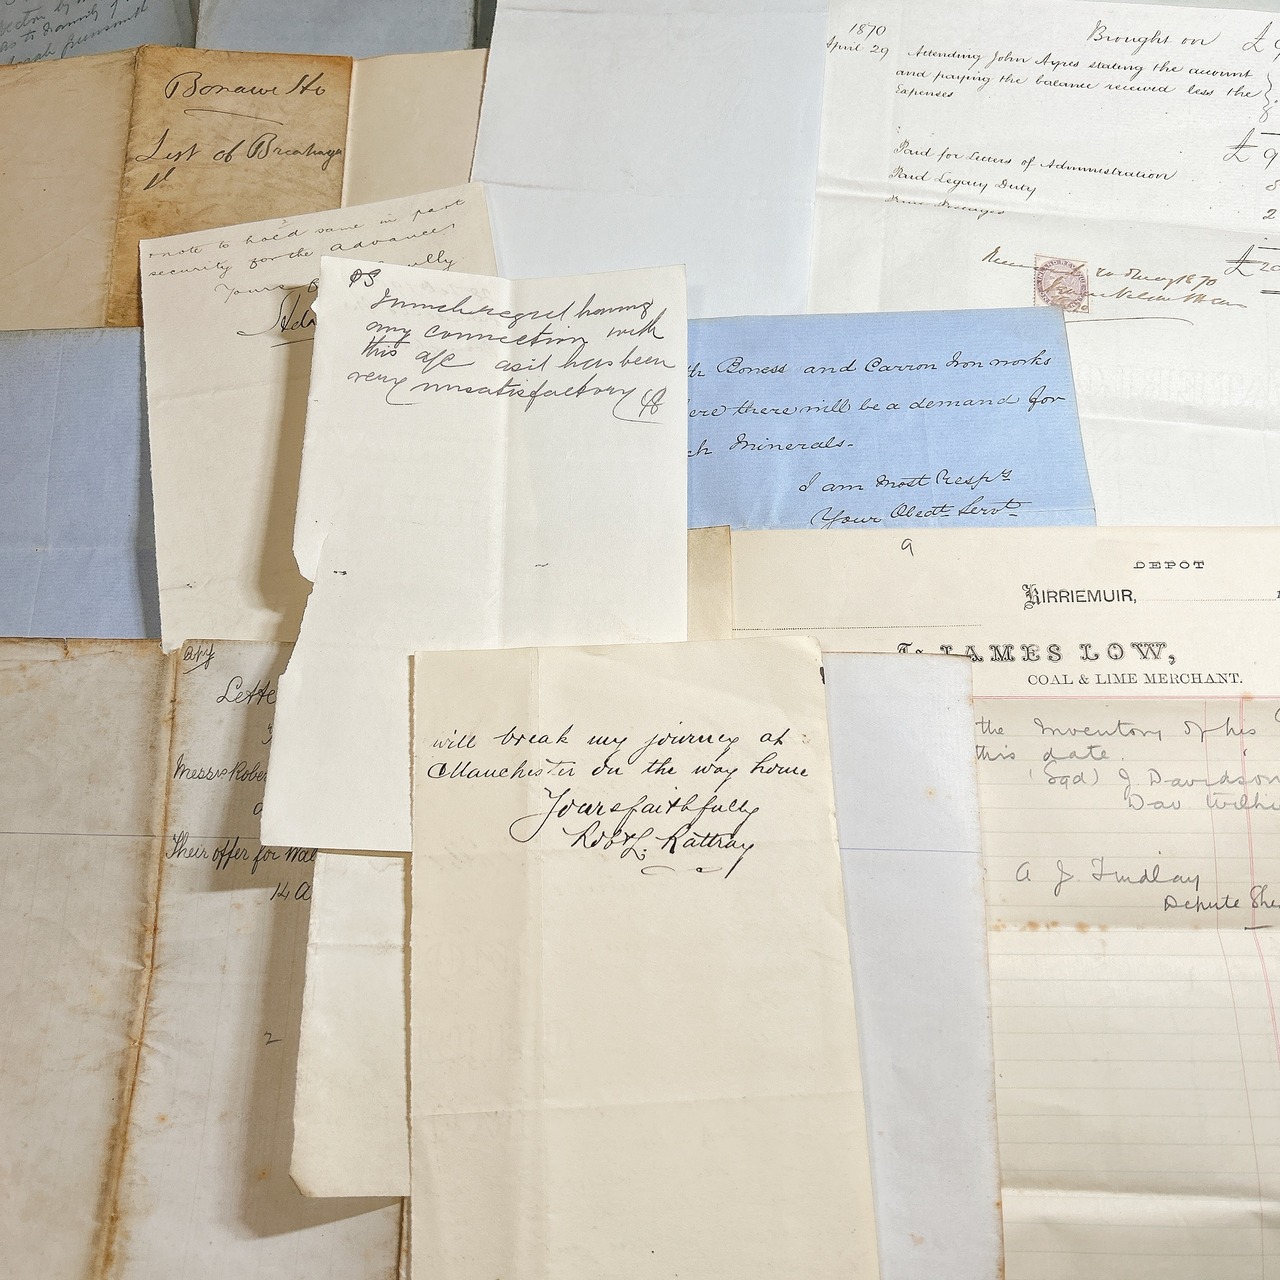 Bonawe Ho
List of Breakage
note to hold same in part
security for the advances
Yours
PS
I much regret having
any connection with
this a/c as it has been
very unsatisfactory
1870
April 29
Brought on £
Attending John Ayres stating the account
and paying the balance received less the
Expenses
£ 9
Paid for Letters of Administration
Paid Legacy Duty
2
£ 20
1870
Boness and Carron Iron works
there will be a demand for
Minerals.
I am Most Respy
Your Obedt Servt
9
DEPOT
KIRRIEMUIR,
To JAMES LOW,
COAL & LIME MERCHANT.
the Inventory of his
this date.
(Sgd) J. Davidson
Dav
A J. Findlay
Depute
Copy
Messrs
Their offer for
14
2
will break my journey at
Manchester on the way home
Yours faithfully
Robt L. Rattray